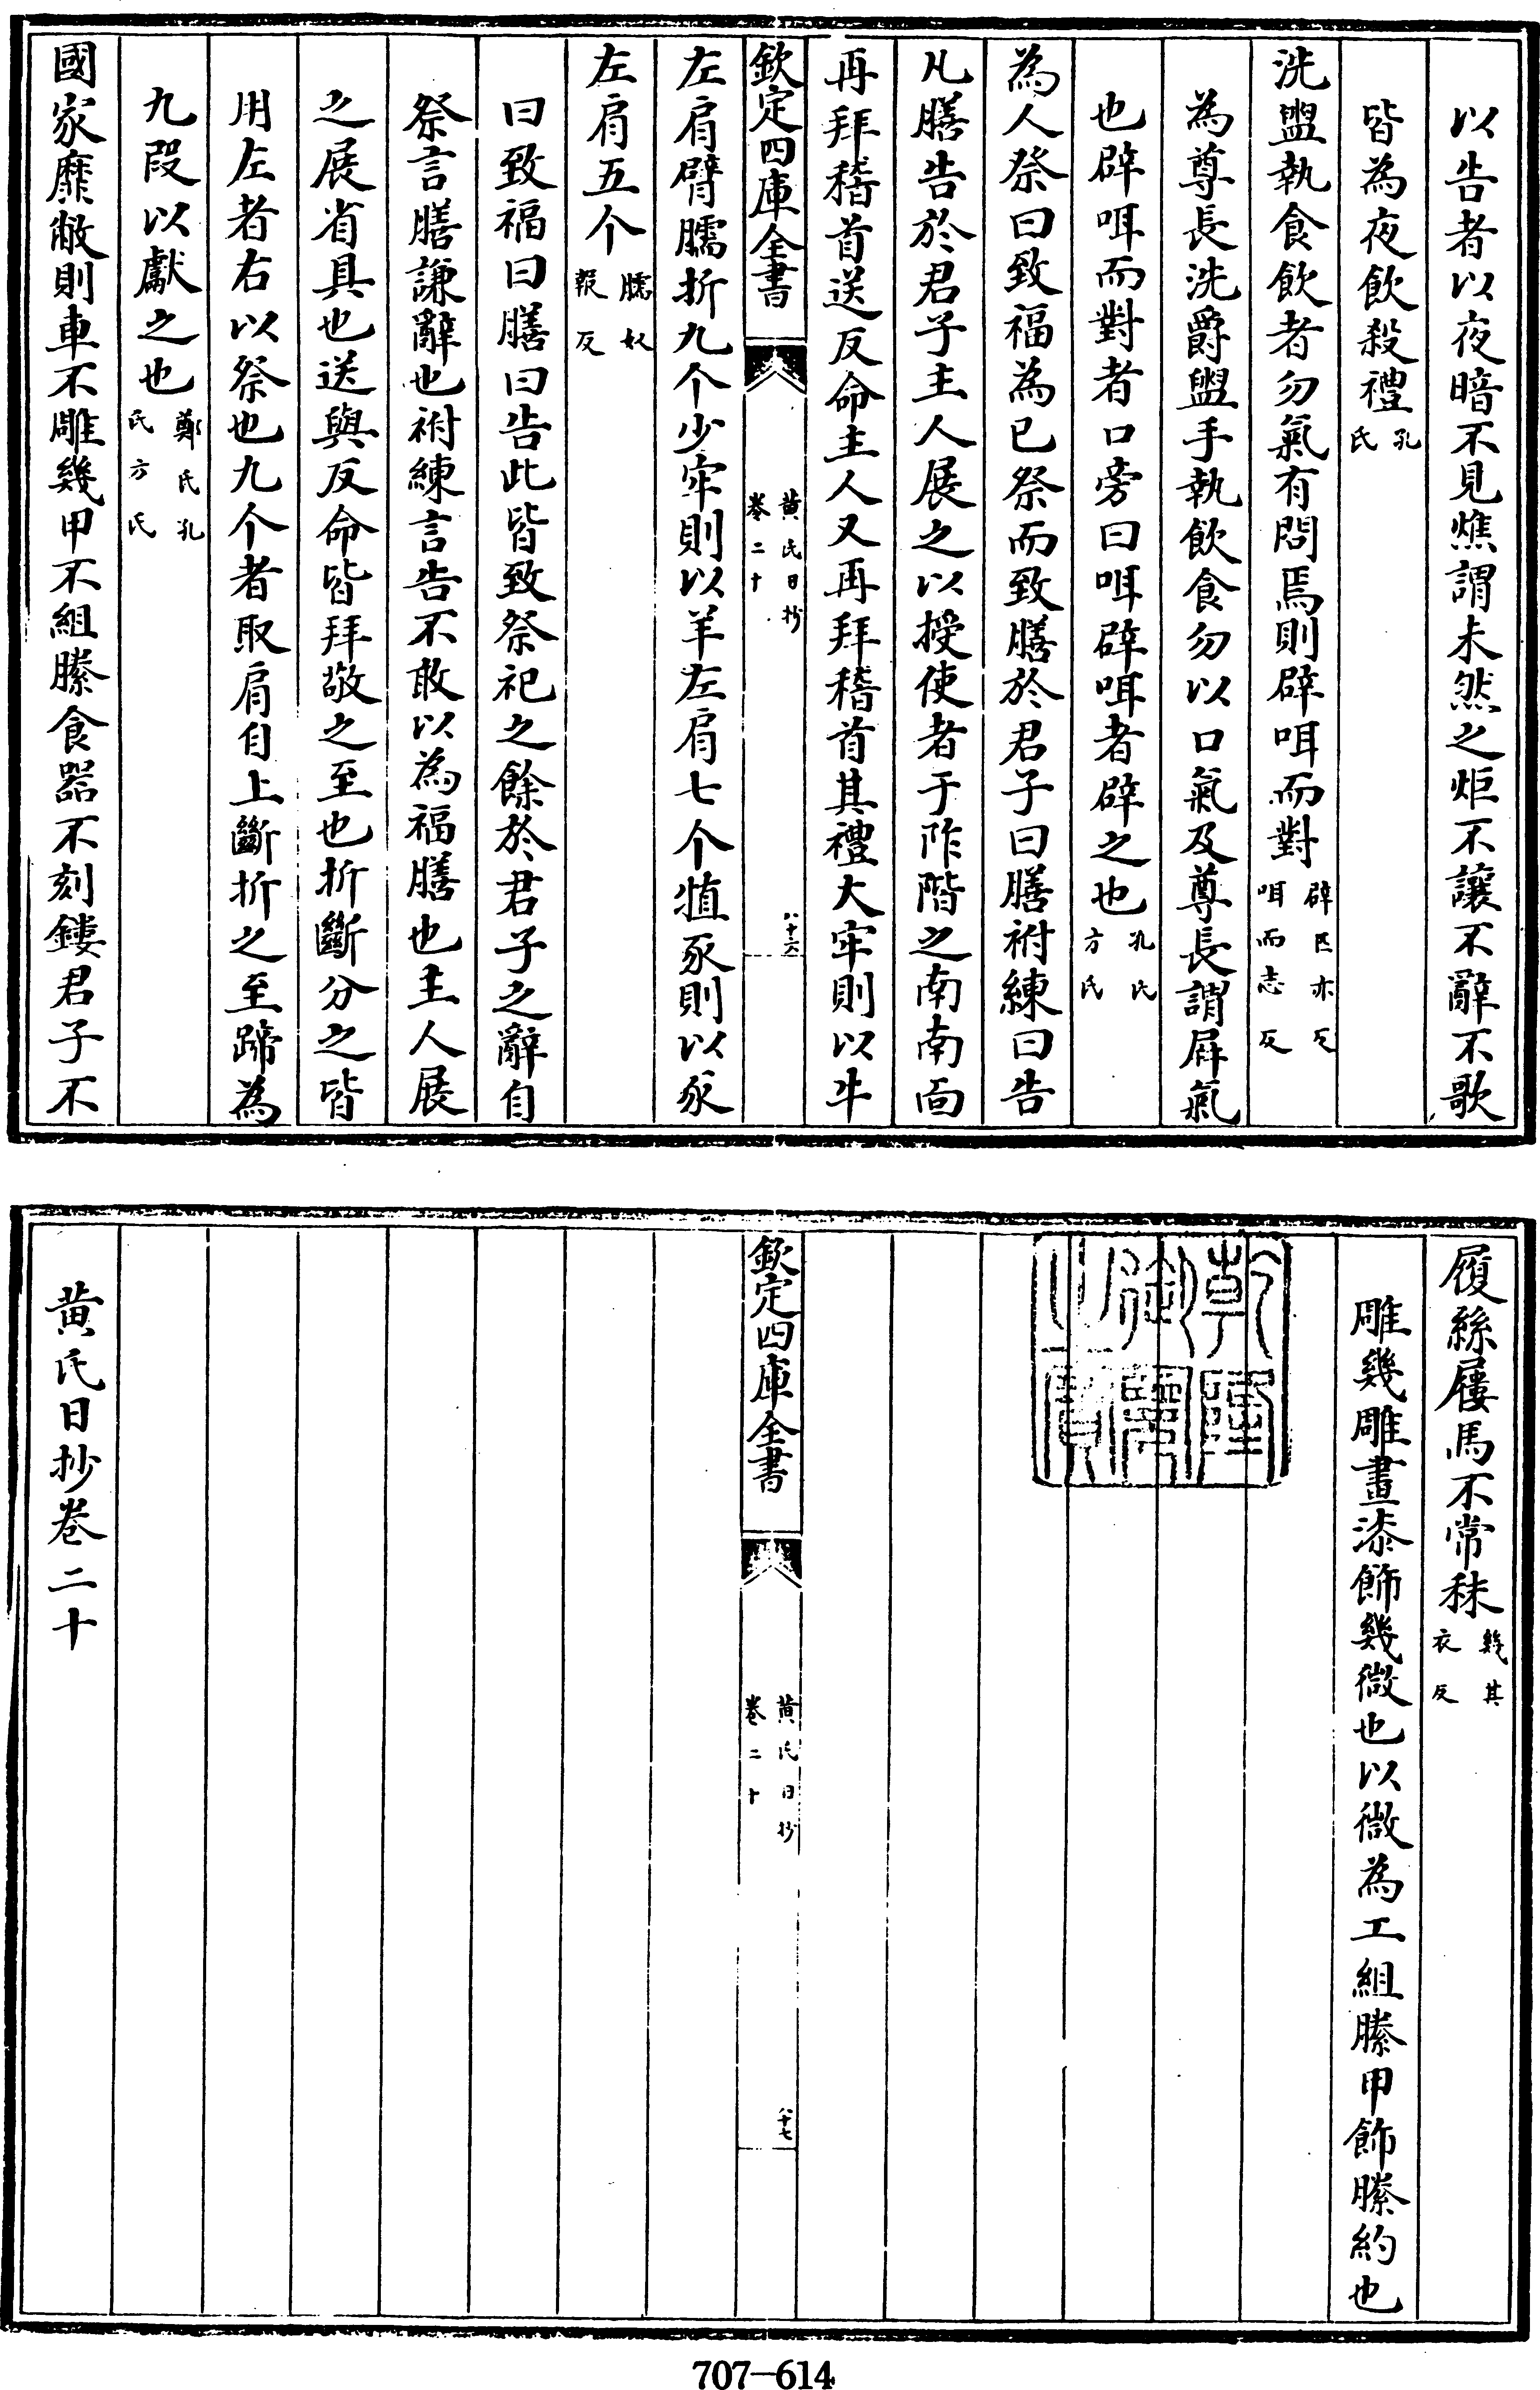 以告者以夜暗不見燋謂未然之炬不讓不辭不歌
皆為夜飲殺禮孔氏
洗盥執食飲者勿氣有問焉則辟咡而對辟匹亦反咡而志反
為尊長洗爵盥手執飲食勿以口氣及尊長謂屏氣
也辟咡而對者口旁曰咡辟咡者辟之也孔氏方氏
為人祭曰致福為已祭而致膳於君子曰膳祔練曰告
凡膳告於君子主人展之以授使者于阼階之南南面
再拜稽首送反命主人又再拜稽首其禮大牢則以牛
欽定四庫全書
黄氏日抄
卷二十
八十六
左肩臂臑折九个少牢則以羊左肩七个犆豕則以豕
左肩五个臑奴報反
曰致福曰膳曰告此皆致祭祀之餘於君子之辭自
祭言膳謙辭也祔練言告不敢以為福膳也主人展
之展省具也送與反命皆拜敬之至也折斷分之皆
用左者右以祭也九个者取肩自上斷折之至蹄為
九段以獻之也鄭氏孔氏方氏
國家靡敝則車不雕幾甲不組縢食器不刻鏤君子不
履絲屨馬不常秣幾其衣反
雕幾雕畫漆飾幾微也以微為工組縢甲飾縢約也
乾隆御覽之寶
欽定四庫全書
黄氏日抄
卷二十
八十七
黄氏日抄卷二十
707-614